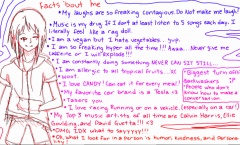 Facts 'bout me
• My laughs are so freaking contagious. Do Not make me laugh!
• Music is my drug. If I don't at least listen to 5 songs each day. I
literally feel like a rag doll
• I am a vegan but I hate vegetables.. yup.
• I am so freaking hyper all the time!!! Aaaa. Never give me
caffeine or I will explode!!!
• I am constantly doing something NEVER CAN SIT STILL...
• I am allergic to all tropical fruits...
woot
• I love CANDY! for every meal!
• My favorite car brand is a Tesla <3
Tasers you
• I love racing. Running or on a vehicle. (especially on a car!)
• My Top 3 music artists of all time are Calvin Harris, Ellie
Goulding, and David Guetta!!! <3
• OMG, IDK what to sayyyy!!!
• Oh, what I look for in a person is human kindness, and personality
Biggest turn offs
Backwashers
People who don't
know how to make a
conversation